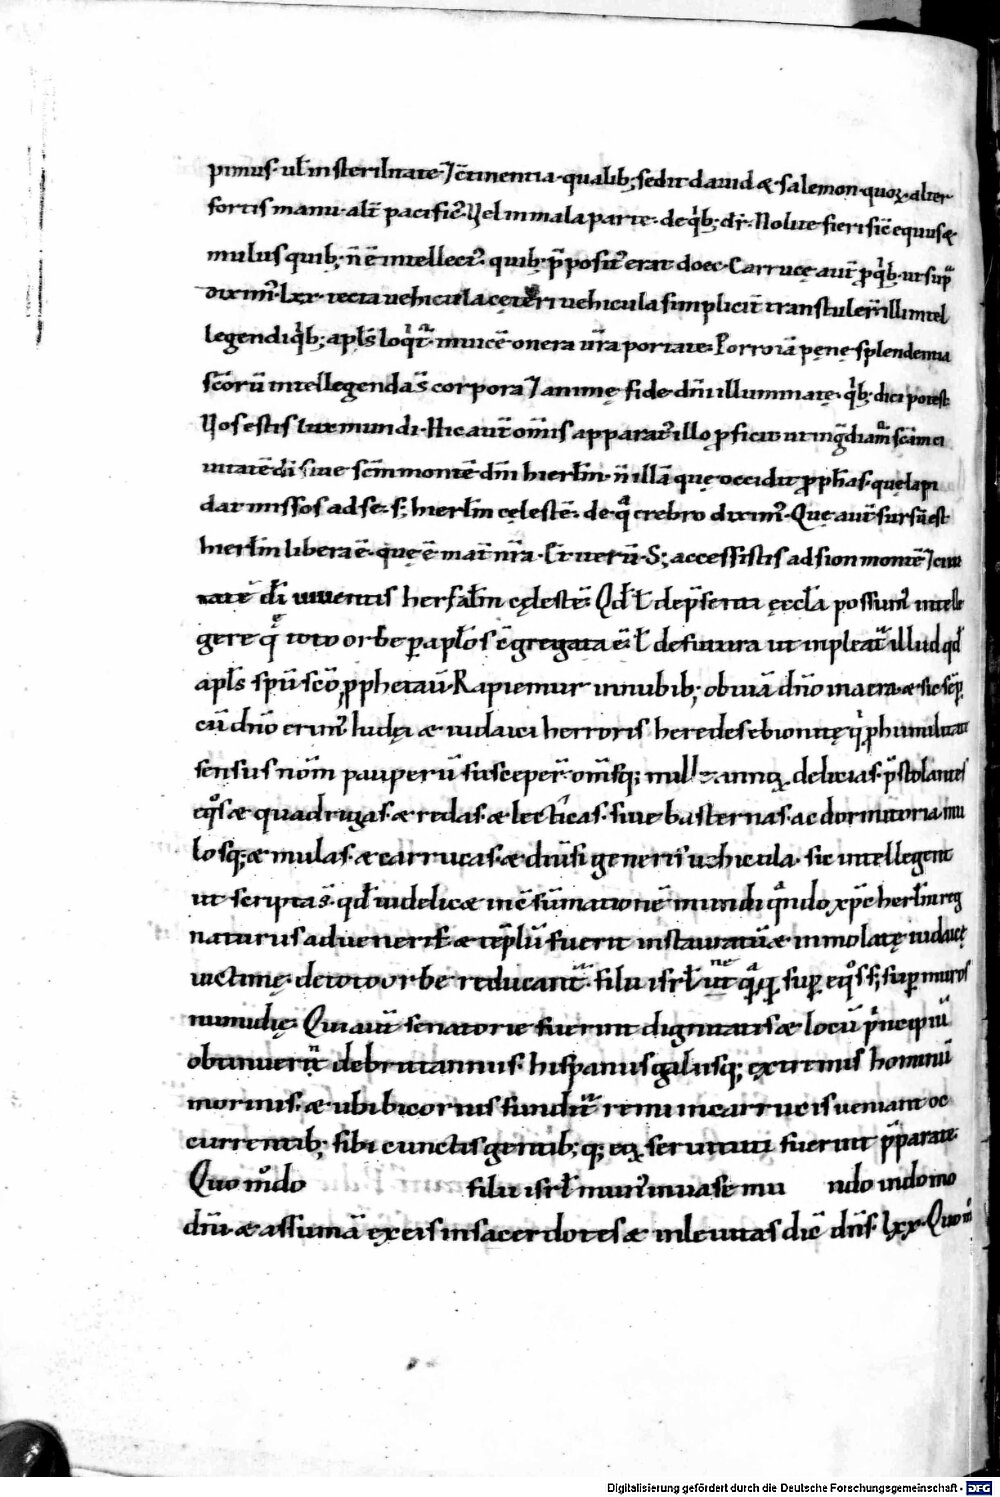 pimus· ul̄ in sterilitate· ⁊c̄tinentia· qualib; sedit dauid & salemon· quoꝝ· alter
fortis manu· alt̄ pacific᾽· Vel in mala parte· de qͥb; dr̄· Nolite fieri sic̄ equus &
mulus quib; n̄ ē intellect᾽· quib; p̄posit᾽ erat doec· Carrucę aut̄ ꝓ qͥb; ut sup̄
dixim᾽· lxx· tecta uehicula ceteri uehicula simplicit̄ transtuler̄ illi intel
legendi qͥb; apl̄s loqͥt᾽· inuicē onera ur̄a portate· Porro iā pęnę splendentia
sc̄orū intellegenda s̄ corpora ⁊ animę fide dn̄i illuminatę· qͥb; dici potest
Vos estis lux mundi· Hic aut̄ om̄is apparat᾽ illo ꝓficit ut ingdiant᾽ sc̄am ci
uitatē dī siue sc̄m montē dn̄i hierl̄m· n̄ illā quę occidit ꝓph̄as· quę lapi
dat missos ad se· s; hierl̄m cęlestē· de qͣ crebro dixim᾽· Quę aut̄ sursū est
hierl̄m libera ē· quę ē mat̄ nr̄a· Et iterū· S; accessistis ad sion montē ⁊ ciui
tatē dī uiuentis herl̄m cęlestē· Qd̄ l̄ de p̄senti ęccl̄a possum᾽ intelle
gere qͤ toto orbe ꝑ apl̄os c̄gregata ē· l̄ de futura ut inpleat᾽ illud qd̄
apl̄s spū sc̄o ꝓphetauī· Rapiemur in nubib; obuiā dn̄o in aera· & sic sēꝑ
cū dn̄o erim᾽· Iudęi & iudaici herroris heredes ebionitę qͥ ꝓ humilitate
sensus nom̄ pauperū susceper̄· om̄sq; mille annoꝝ delicias p̄stolantes
eqͦs & quadrigas· & redas· & lecticas· siue basternas· ac dormitoria· mu
losq; & mulas· & carrucas· & diuīsi generis uehicula· sic intellegent
ut scripta s̄· qd̄ uidelicet in c̄sūmationē mundi qͣndo xp̄c herl̄m reg
naturus aduenerit & tēplū fuerit instauratū & immolatę iudaicę
uictimę· de toto orbe reducant᾽· filii isrl̄ ut neqͣqꝫ suꝑ eqͦs s; suꝑ muros
numidię· Qui aut̄ senatorie fuerint dignitatis & locū p̄ncipiū
obtinuerīt de brittannus· hispanus galusq; extremis hominū
morinis· & ubi bicornis fundit᾽ renu in carrucis ueniant oc
currentib; sibi cunctis gentib; q; eoꝝ seruituti fuerint p̄parate·
Quomͦdo filii isrl̄ mun᾽ in uase mundo in domo
dn̄i· & assumā ex eis in sacerdotes & in leuitas dic̄ dn̄s· lxx· Quom̄
Digitalisierung gefördert durch die Deutsche Forschungsgemeinschaft - DFG